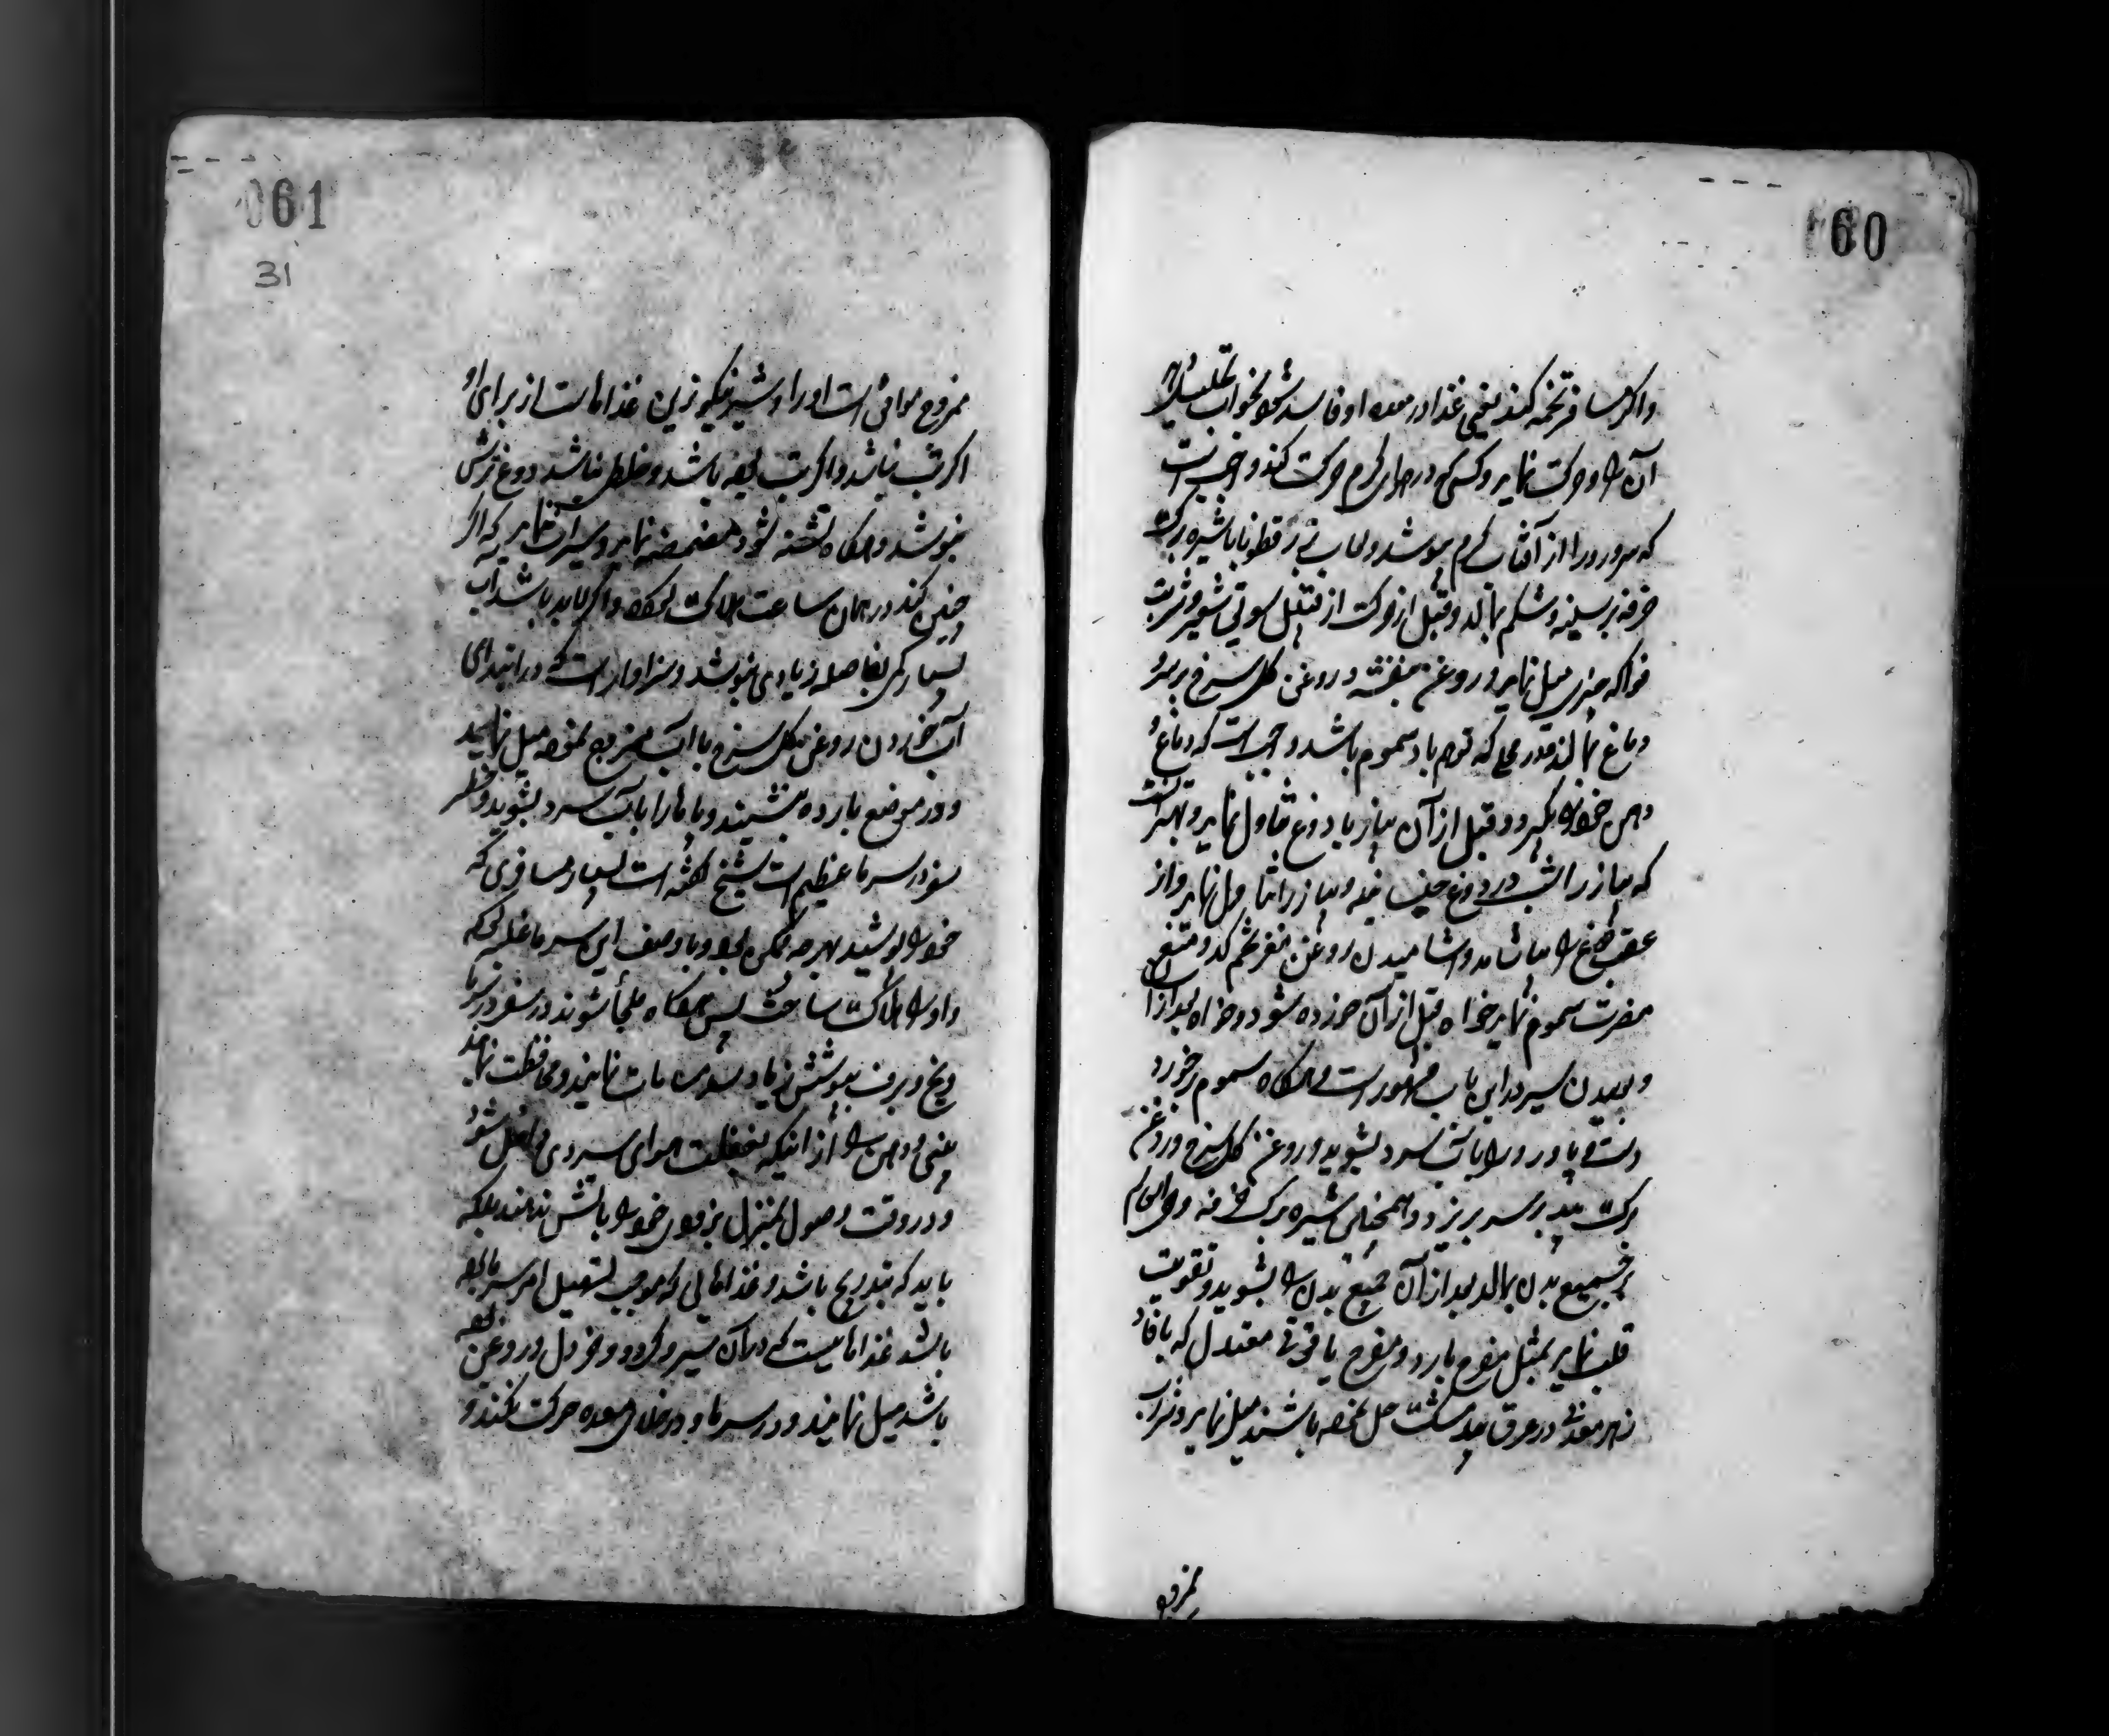 060
واکر مسافر تخمه کند یعنی غذا در معده او فاسد شود بخواب تحلیل
آن را و حرکت نماید و کسی که در هوای کرم حرکت کند واجب است
که سر و رو را از آفتاب کرم بپوشد و لعاب بزرقطونا با شیره برک
خرفه بر سینه و شکم بمالد و قبل از حرکت از قبیل سویق شعیر و شربت
فواکه چیزی میل نماید و روغن بنفشه و روغن کل سرخ بر سر و
دماغ بمالد و در محلی که توهم باد سموم باشد واجبست که دماغ و
دهن خود را بکیرد و قبل از آن پیاز با دوغ تناول نماید و بهتر آنست
که پیاز را شب در دوغ خیسانیده و پیاز را تناول نماید و از
عقب دوغ را بیاشامد و اشامیدن روغن مغز تخم کدو منع
مضرت سموم نماید خواه قبل از آن خورده شود و خواه بعد از آن
و بوییدن سیر در این باب مشهور است و هرکاه سموم برخورد
دست و پا و رو را بآب سرد بشوید و روغن کل سرخ و روغن
برک بید بر سر بریزد و همچنین شیره برک خرفه و حی العالم
بر جمیع بدن بمالد بعد از آن جمیع بدن را بشوید و تقویت
قلب نماید بمثل مفرح بارد و مفرح یاقوتی معتدل که با فاد
زهر معدنی در عرق بیدمشک حل نموده باشند میل نماید و شراب
ممزوج
061
31
ممزوج موافق است او را و شیر نیکوترین غذاهاست از برای او
اکر تب نباشد و اکر تب بوده باشد و خلطی نباشد دوغ ترش
بنوشد و هرکاه تشنه شود مضمضه نماید و سیرآب ننماید که اکر
چنین کند در همان ساعت هلاک شود و اکر لابد باشد آب
بسیار کمی بفاصله زیادی بنوشد و سزاوار است که در ابتدای
آب خوردن روغن کل سرخ با آب ممزوج نموده میل نمایند
و در موضع بارده بنشیند و پاها را بآب سرد بشوید و خطر
سفر در سرما عظیم است شیخ کفته است بسیار مسافری که
خود را پوشیده بهرچه ممکن بود و با وصف این سرما غلبه کرده
و او را هلاک ساخت پس هرکاه ملجأ شوند در سفر در سرما
و یخ و برف بپوشش زیاد مراعات نمایند و محافظت نمایند
بینی و دهن را از اینکه بغفلت هوای سردی داخل شود
و در وقت وصول بمنزل بزودی خود را بآتش ندهند بلکه
باید که بتدریج باشد و غذاهایی که موجب تسهیل امر سرما بوده
باشد غذاهاییست که در آن سیر و کردو و خردل و روغن بوده
باشد میل نمایند و در سرما و در خلای معده حرکت نکنند و